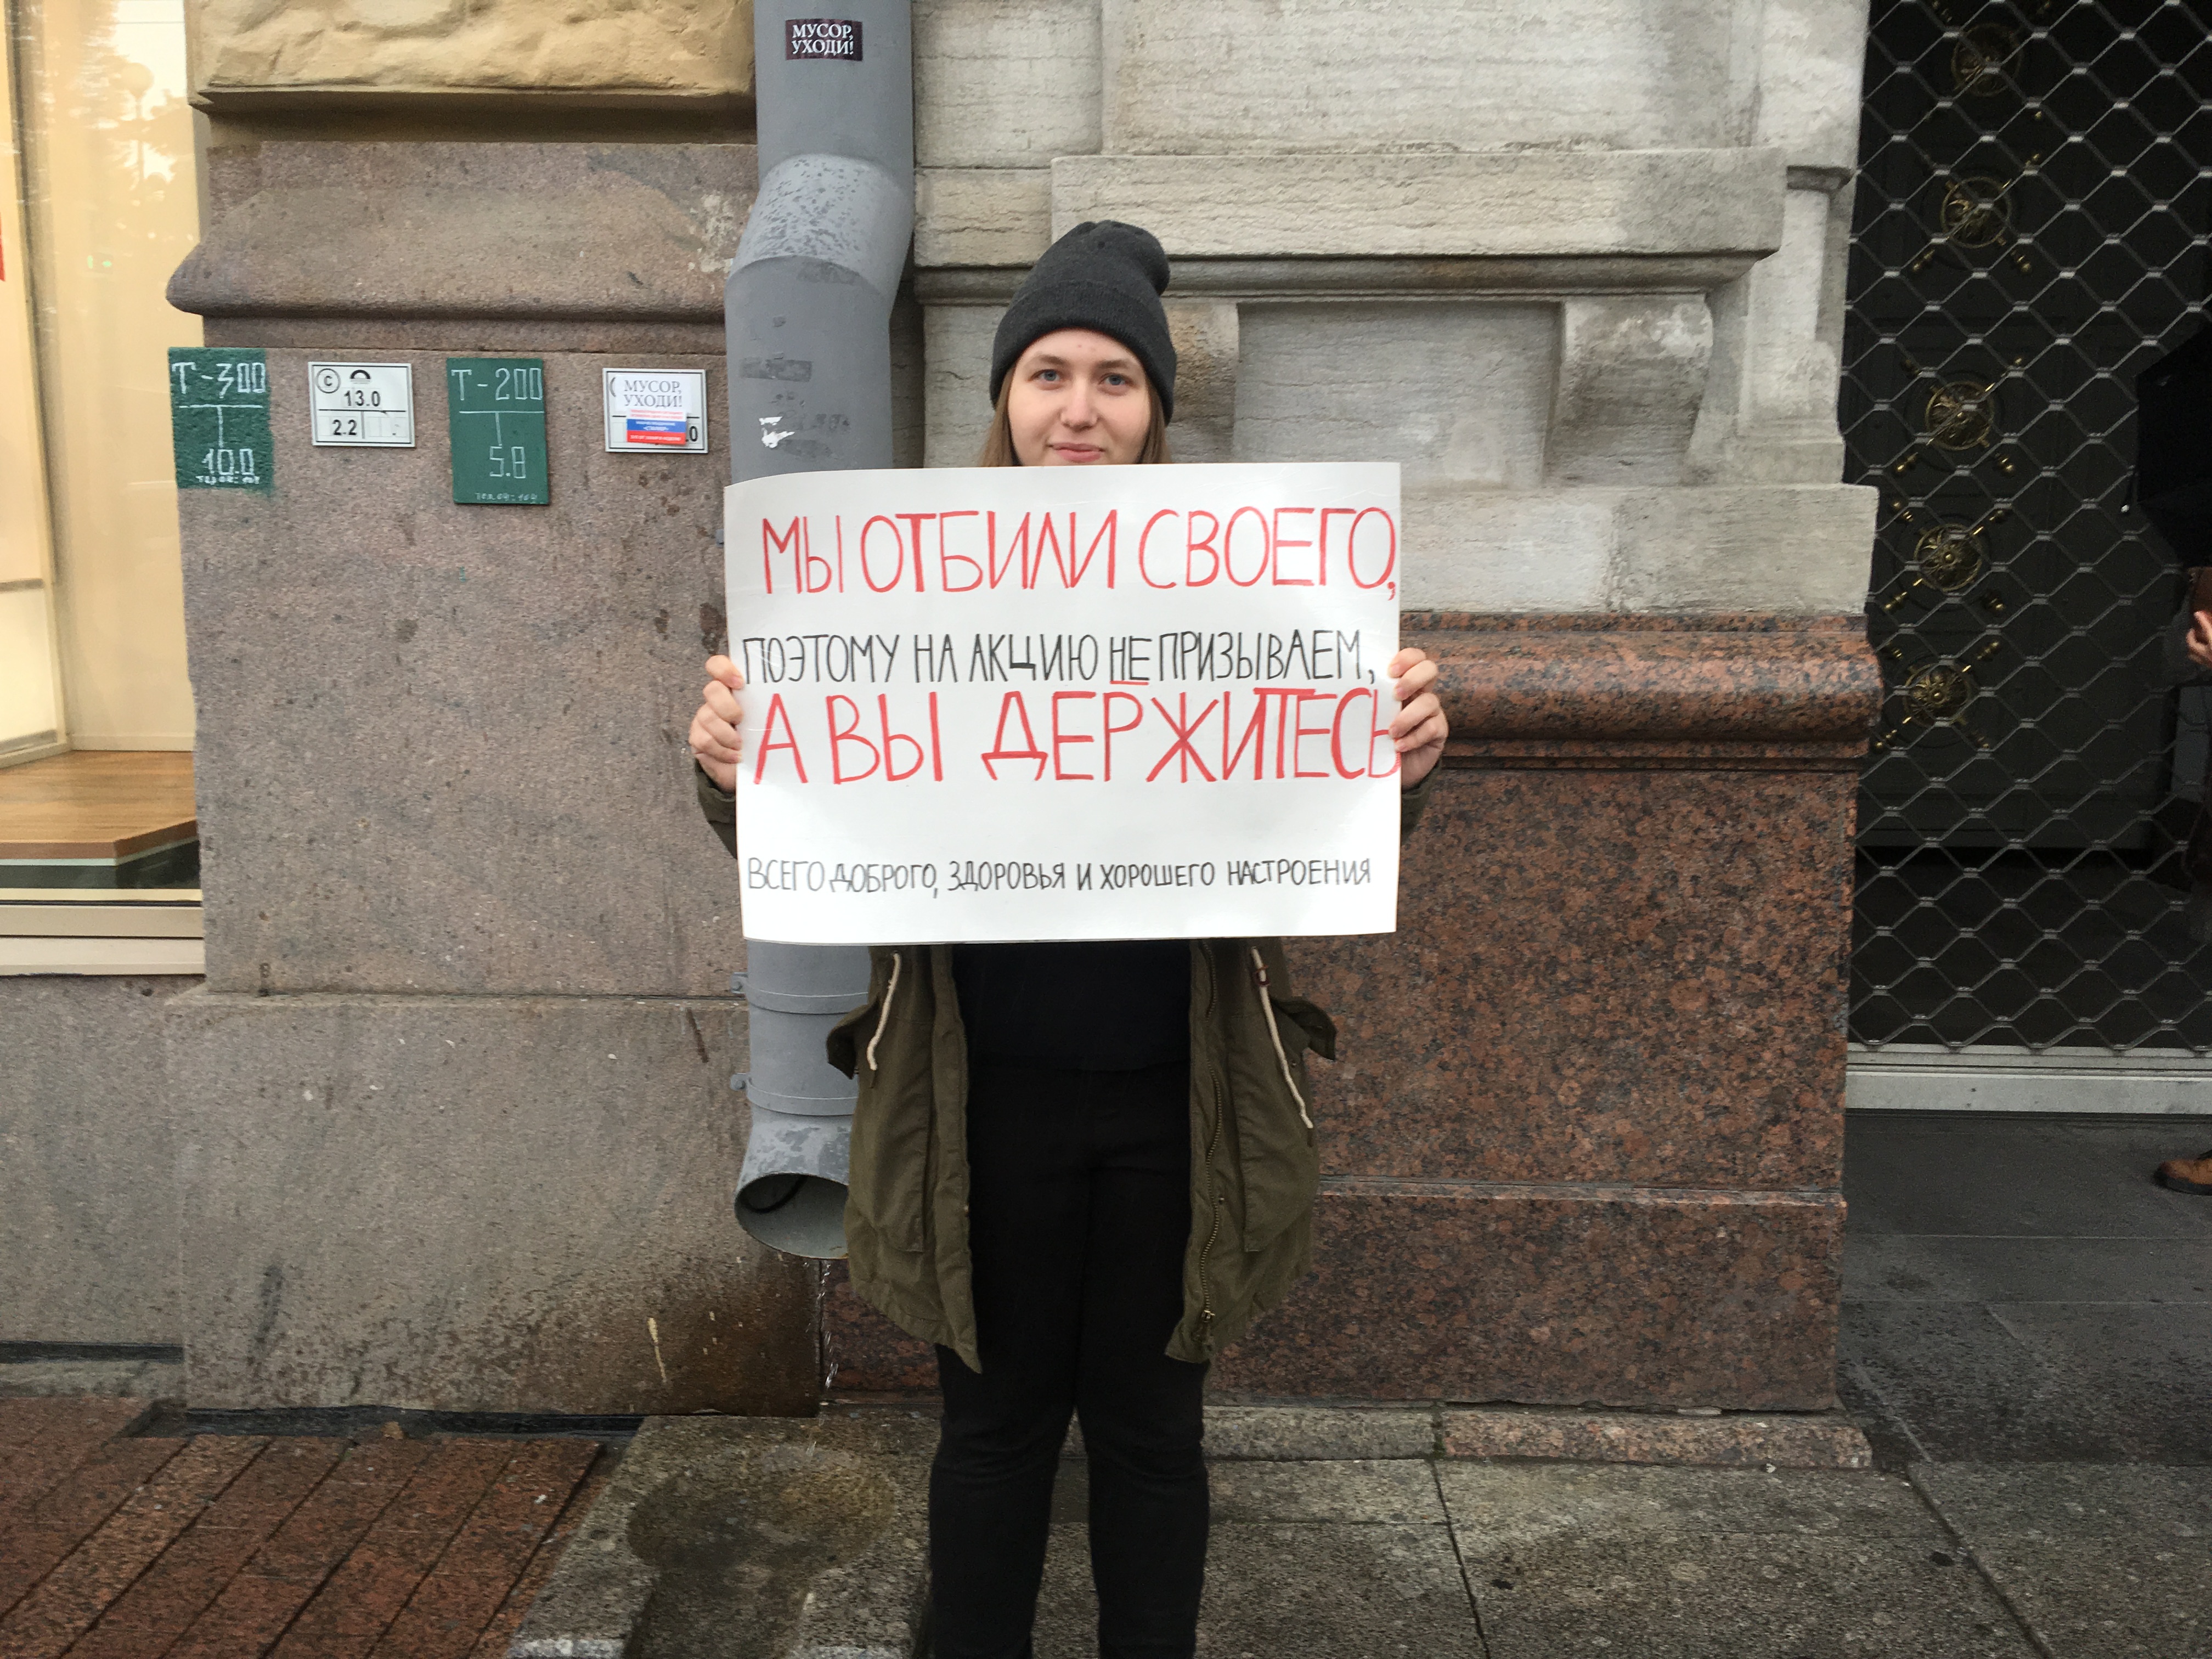 МУСОР,
УХОДИ!
Т-300
10.0
13.0
2.2
Т-200
5.8
МУСОР,
УХОДИ!
МЫ ОТБИЛИ СВОЕГО,
ПОЭТОМУ НА АКЦИЮ НЕ ПРИЗЫВАЕМ,
А ВЫ ДЕРЖИТЕСЬ
ВСЕГО ДОБРОГО, ЗДОРОВЬЯ И ХОРОШЕГО НАСТРОЕНИЯ